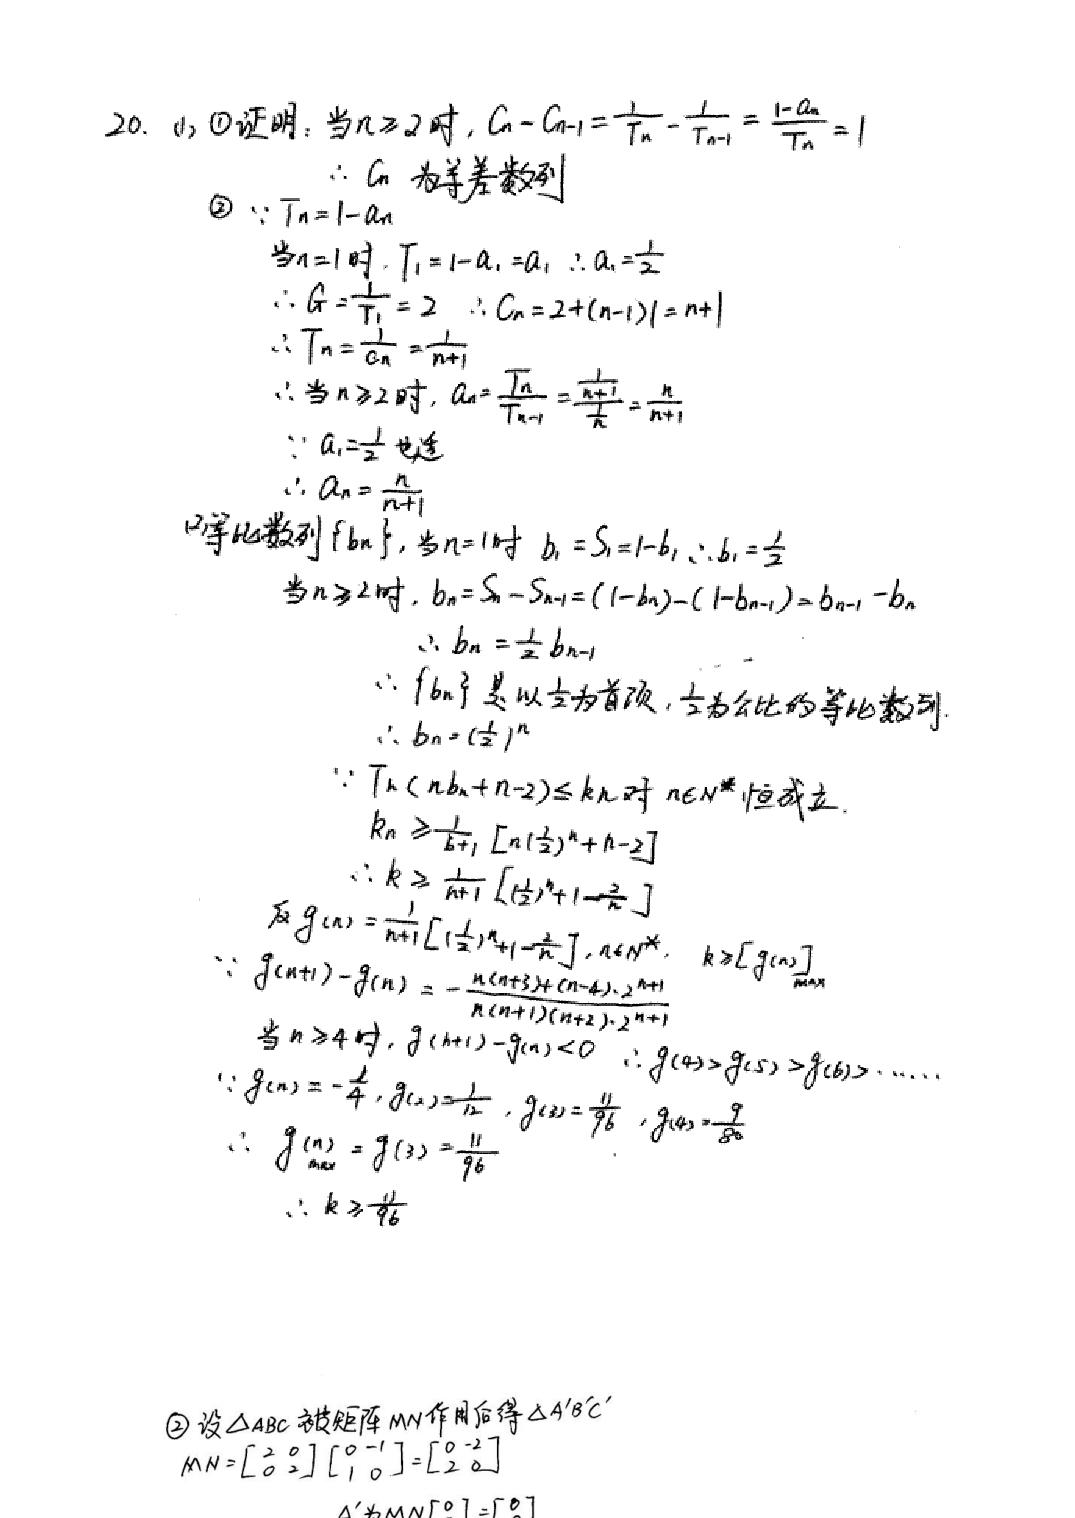 20. (1) ①证明：当n≥2时，Cn-Cn-1=1/Tn-1/Tn-1=(1-an)/Tn=1
∴Cn 为等差数列
② ∵Tn=1-an
当n=1时，T1=1-a1=a1 ∴a1=1/2
∴C1=1/T1=2 ∴Cn=2+(n-1)1=n+1
∴Tn=1/Cn=1/(n+1)
∴当n≥2时，an=Tn/Tn-1=(1/(n+1))/(1/n)=n/(n+1)
∵a1=1/2 也适
∴an=n/(n+1)
(2)等比数列{bn}，当n=1时 b1=S1=1-b1 ∴b1=1/2
当n≥2时，bn=Sn-Sn-1=(1-bn)-(1-bn-1)=bn-1-bn
∴bn=1/2 bn-1
∴{bn}是以1/2为首项，1/2为公比的等比数列.
∴bn=(1/2)^n
∵Tn(nbn+n-2)≤kn对 n∈N*恒成立.
kn≥1/(n+1)[n(1/2)^n+n-2]
∴k≥1/(n+1)[(1/2)^n+1-2/n]
g(n)=1/(n+1)[(1/2)^n+1-2/n]，n∈N*. k≥[g(n)]max
∵g(n+1)-g(n)=-(n(n+3)+(n-4)·2^(n+1))/(n(n+1)(n+2)·2^(n+1))
当n≥4时，g(n+1)-g(n)<0 ∴g(4)>g(5)>g(6)>……
∵g(n)=-1/4，g(2)=1/12，g(3)=11/96，g(4)=9/80
∴g(n)max=g(3)=11/96
∴k≥11/96
②设△ABC被矩阵MN作用后得△A'B'C'
MN=[2 0; 0 2][0 -1; 1 0]=[0 -2; 2 0]
A'为MN[0